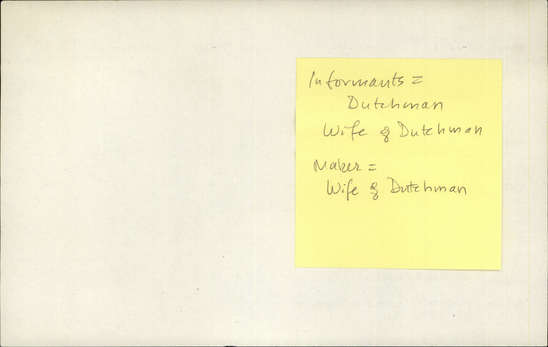 Informants =
Dutchman
Wife of Dutchman
Maker =
Wife of Dutchman